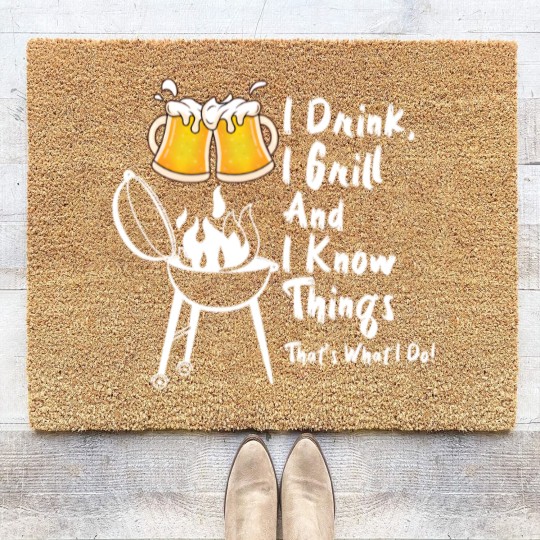 I Drink,
I Grill
And
I Know
Things
That's What I Do!